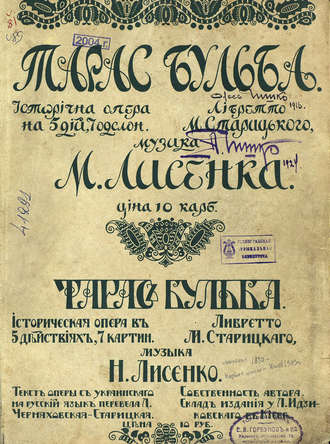 2004 г.
ТАРАС БУЛЬБА.
Історічна опера
на 5 дій, 7 одслон.
Лібретто
М. Старицького,
музика
М. Лисенка.
ціна 10 карб.
41991
ТАРАСЪ БУЛЬБА.
Историческая опера въ
5 дѣйствіяхъ, 7 картин.
Либретто
М. Старицкаго,
музыка
Н. Лисенко.
Текстъ оперы съ украинскаго
на русскій языкъ перевела Л.
Черняховская-Старицкая.
Собственность автора.
Складъ изданія у Л. Идзи-
ковскаго въ Кіевѣ.
цѣна 10 руб.